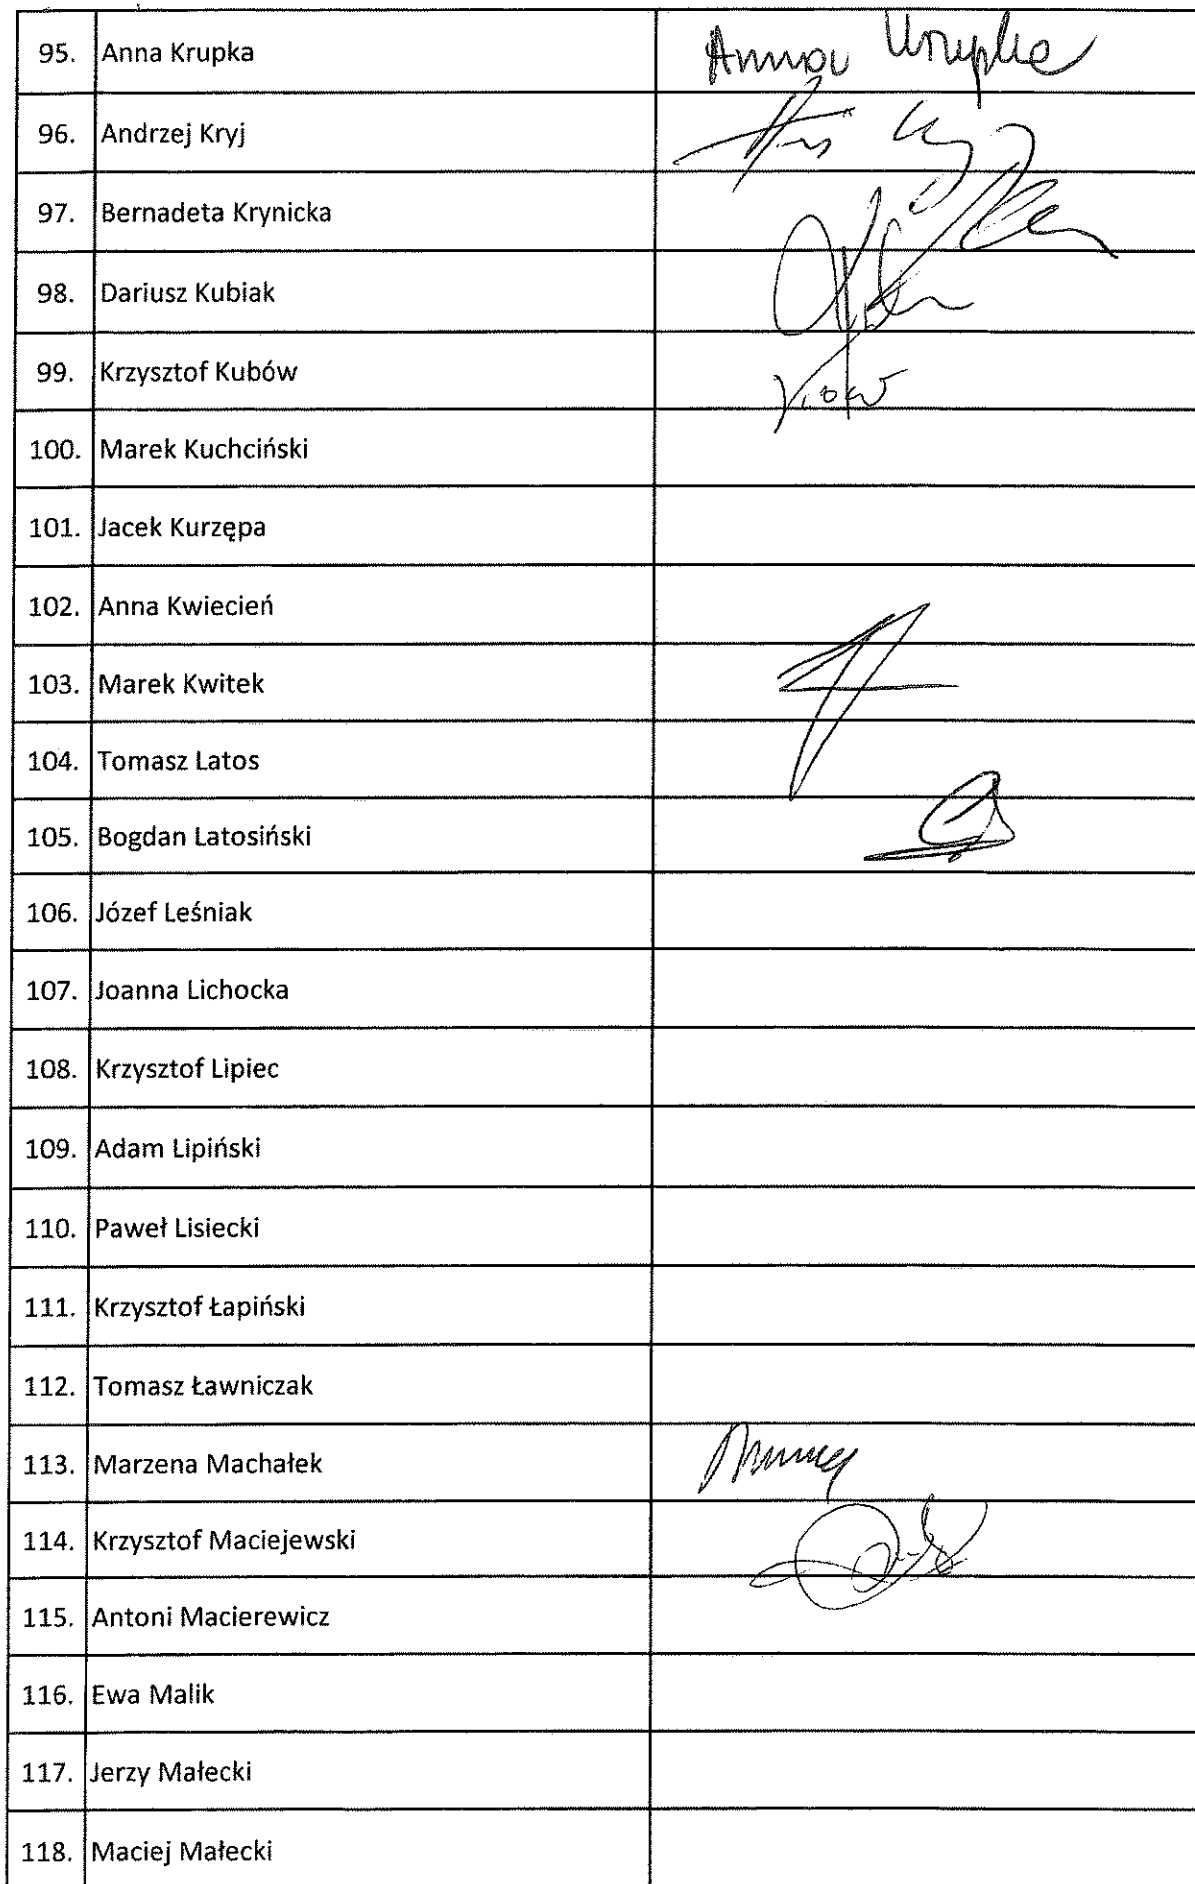 95. Anna Krupka Anna Krupka
96. Andrzej Kryj
97. Bernadeta Krynicka
98. Dariusz Kubiak
99. Krzysztof Kubów
100. Marek Kuchciński
101. Jacek Kurzępa
102. Anna Kwiecień
103. Marek Kwitek
104. Tomasz Latos
105. Bogdan Latosiński
106. Józef Leśniak
107. Joanna Lichocka
108. Krzysztof Lipiec
109. Adam Lipiński
110. Paweł Lisiecki
111. Krzysztof Łapiński
112. Tomasz Ławniczak
113. Marzena Machałek
114. Krzysztof Maciejewski
115. Antoni Macierewicz
116. Ewa Malik
117. Jerzy Małecki
118. Maciej Małecki